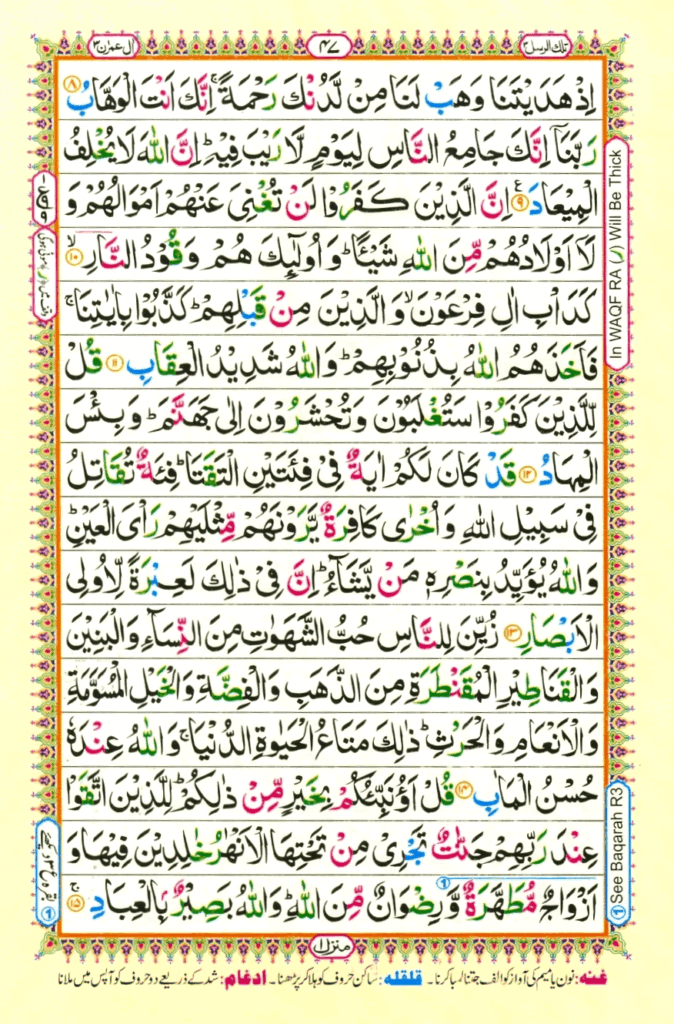 تلك الرسل ٣
٤٧
اٰل عمرٰن ٣
اِذْ هَدَيْتَنَا وَهَبْ لَنَا مِنْ لَّدُنْكَ رَحْمَةً ۚ اِنَّكَ اَنْتَ الْوَهَّابُ ۝۸
رَبَّنَاۤ اِنَّكَ جَامِعُ النَّاسِ لِيَوْمٍ لَّا رَيْبَ فِيْهِ ؕ اِنَّ اللّٰهَ لَا يُخْلِفُ
الْمِيْعَادَ ۝۹ ع اِنَّ الَّذِيْنَ كَفَرُوْا لَنْ تُغْنِىَ عَنْهُمْ اَمْوَالُهُمْ وَ
لَاۤ اَوْلَادُهُمْ مِّنَ اللّٰهِ شَيْـًٔا ؕ وَ اُولٰٓئِكَ هُمْ وَقُوْدُ النَّارِ ۙ ۝۱۰
كَدَاْبِ اٰلِ فِرْعَوْنَ ۙ وَ الَّذِيْنَ مِنْ قَبْلِهِمْ ؕ كَذَّبُوْا بِاٰيٰتِنَا ۚ
فَاَخَذَهُمُ اللّٰهُ بِذُنُوْبِهِمْ ؕ وَاللّٰهُ شَدِيْدُ الْعِقَابِ ۝۱۱ قُلْ
لِّلَّذِيْنَ كَفَرُوْا سَتُغْلَبُوْنَ وَ تُحْشَرُوْنَ اِلٰى جَهَنَّمَ ؕ وَ بِئْسَ
الْمِهَادُ ۝۱۲ قَدْ كَانَ لَكُمْ اٰيَةٌ فِىْ فِئَتَيْنِ الْتَقَتَا ؕ فِئَةٌ تُقَاتِلُ
فِىْ سَبِيْلِ اللّٰهِ وَ اُخْرٰى كَافِرَةٌ يَّرَوْنَهُمْ مِّثْلَيْهِمْ رَاْىَ الْعَيْنِ ؕ
وَ اللّٰهُ يُؤَيِّدُ بِنَصْرِهٖ مَنْ يَّشَآءُ ؕ اِنَّ فِىْ ذٰلِكَ لَعِبْرَةً لِّاُولِى
الْاَبْصَارِ ۝۱۳ زُيِّنَ لِلنَّاسِ حُبُّ الشَّهَوٰتِ مِنَ النِّسَآءِ وَالْبَنِيْنَ
وَالْقَنَاطِيْرِ الْمُقَنْطَرَةِ مِنَ الذَّهَبِ وَالْفِضَّةِ وَالْخَيْلِ الْمُسَوَّمَةِ
وَ الْاَنْعَامِ وَالْحَرْثِ ؕ ذٰلِكَ مَتَاعُ الْحَيٰوةِ الدُّنْيَا ۚ وَ اللّٰهُ عِنْدَهٗ
حُسْنُ الْمَاٰبِ ۝۱۴ قُلْ اَؤُنَبِّئُكُمْ بِخَيْرٍ مِّنْ ذٰلِكُمْ ؕ لِلَّذِيْنَ اتَّقَوْا
عِنْدَ رَبِّهِمْ جَنّٰتٌ تَجْرِىْ مِنْ تَحْتِهَا الْاَنْهٰرُ خٰلِدِيْنَ فِيْهَا وَ
اَزْوَاجٌ مُّطَهَّرَةٌ وَّ رِضْوَانٌ مِّنَ اللّٰهِ ؕ وَاللّٰهُ بَصِيْرٌۢ بِالْعِبَادِ ۚ ۝۱۵
In WAQF RA (ر) Will Be Thick
See Baqarah R3
منزل ۱
غنه: نون یا میم کی آواز کو الف جتنا لمبا کرنا۔ قلقله: ساکن حروف کو ہلا کر پڑھنا۔ ادغام: شد کے ذریعے دو حروف کو آپس میں ملانا